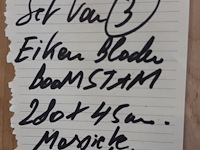 Set van 3
Eiken Bladen
BOOMSTAM
280x45cm.
Massieke